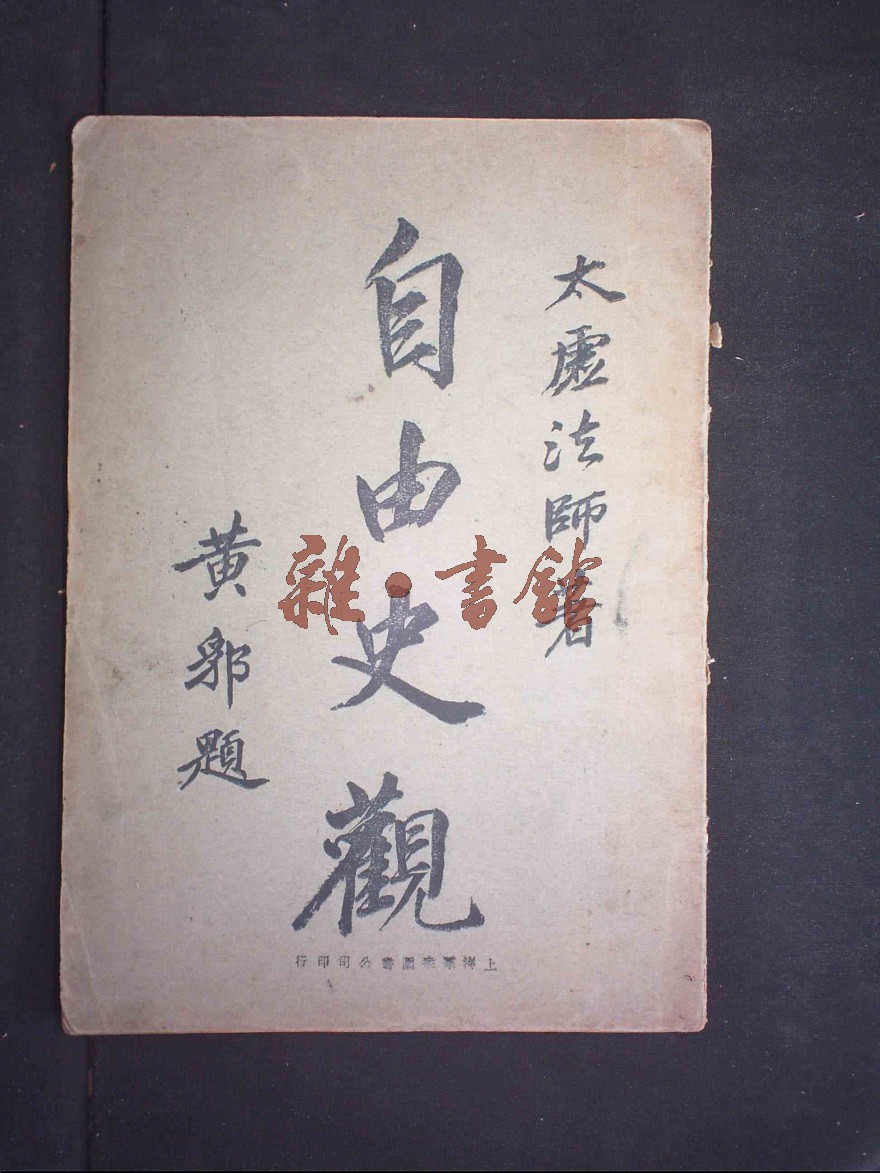 太虛法師著
自由史觀
黃郛題
上海羣衆圖書公司印行
雜·書館